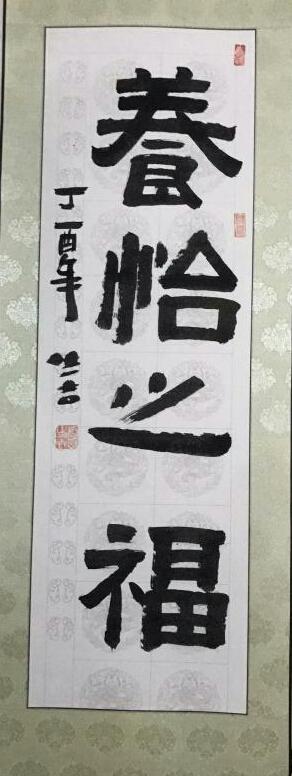 養怡之福
丁酉年